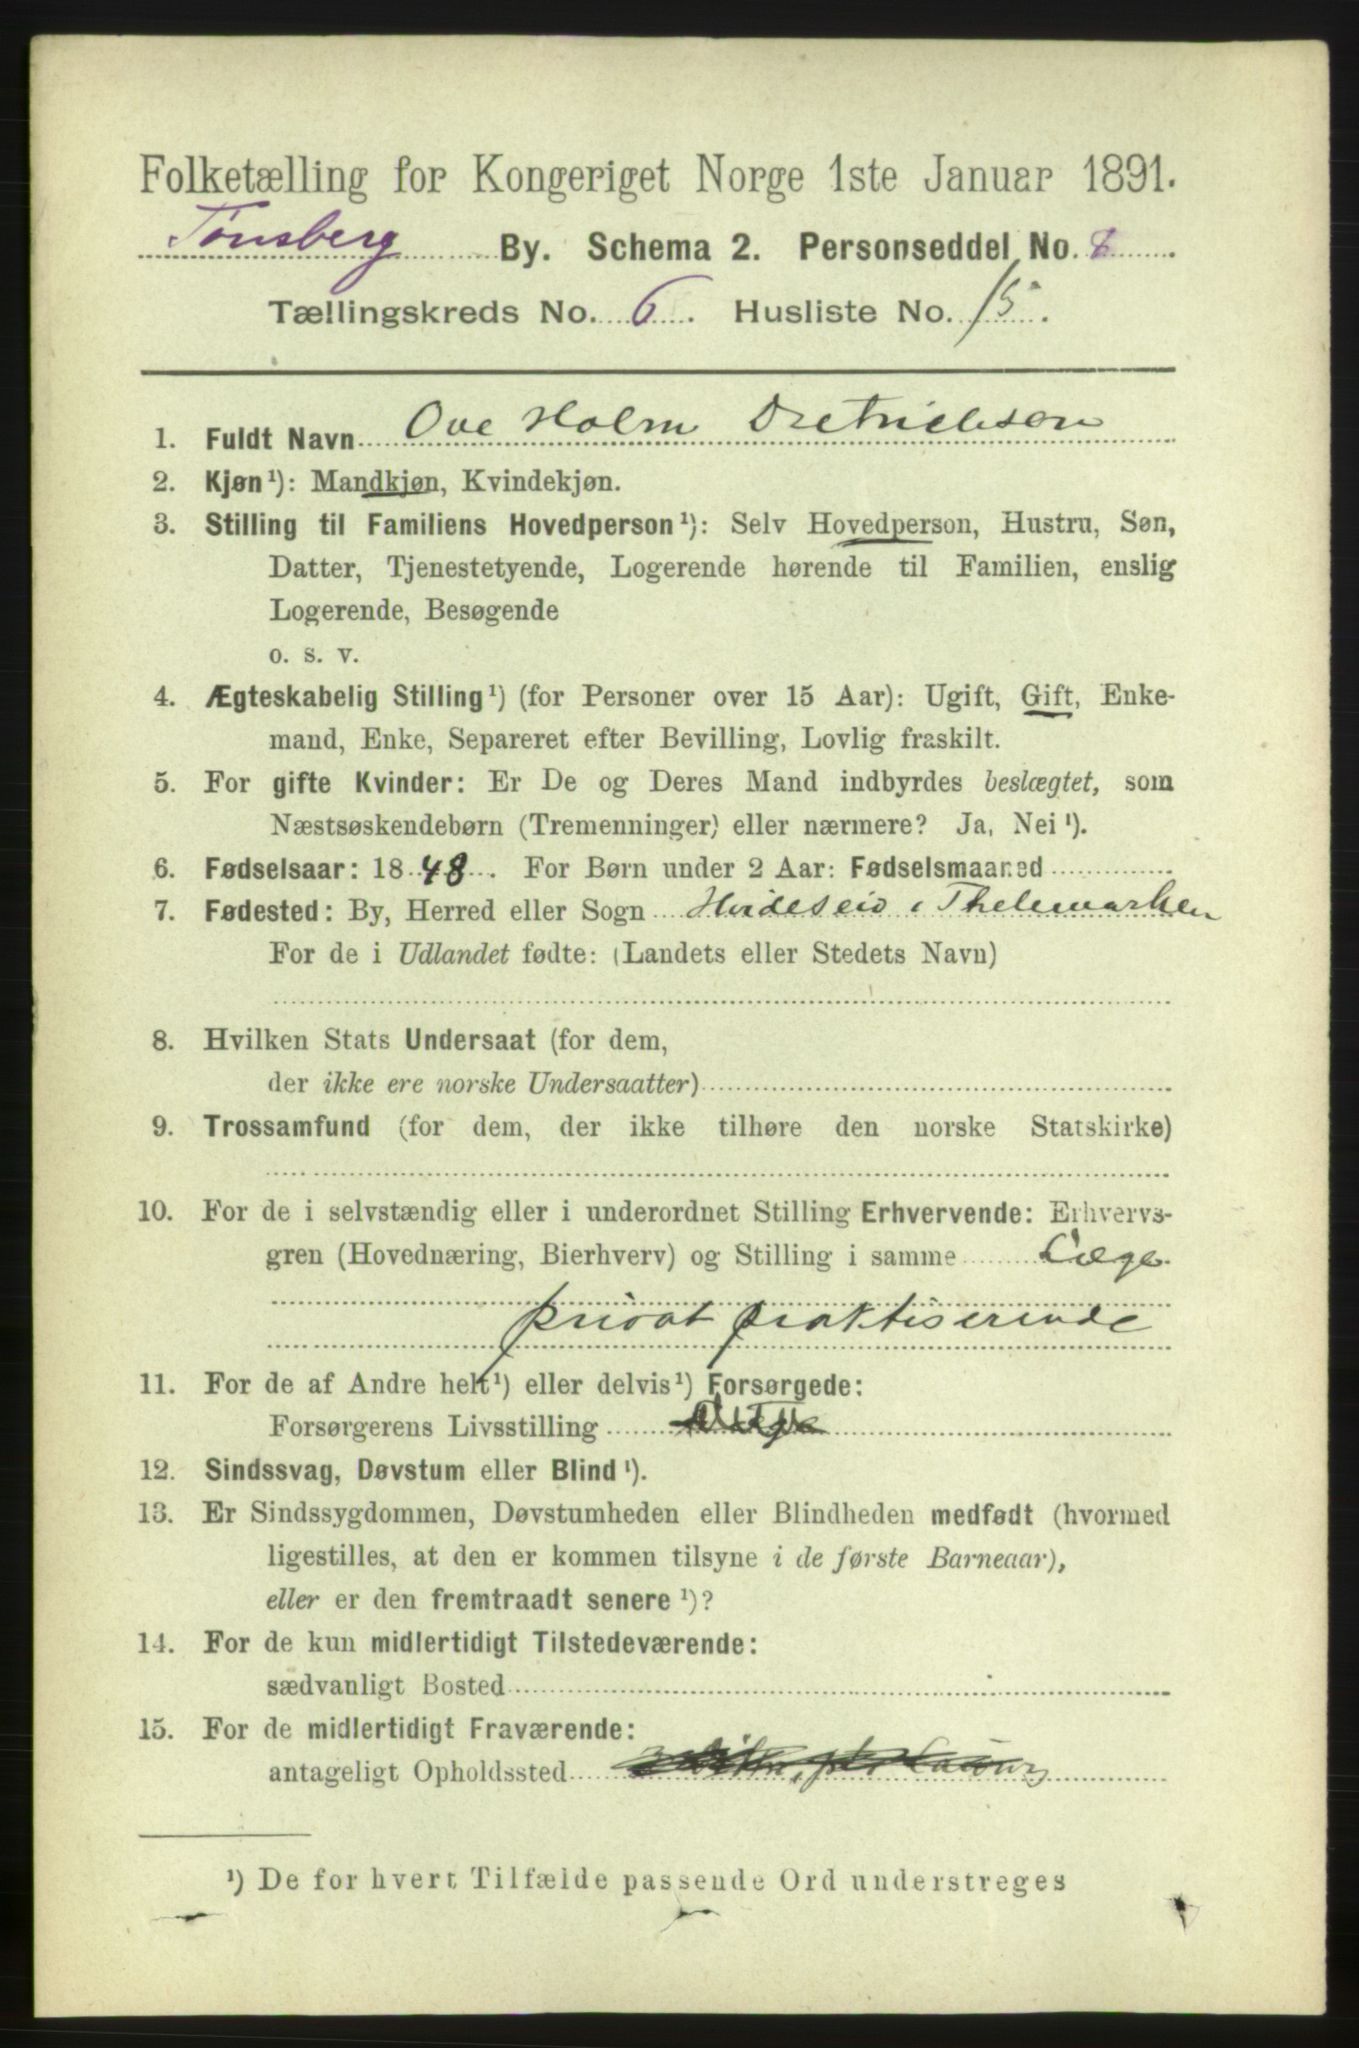 Folketælling for Kongeriget Norge 1ste Januar 1891.
Tønsberg By. Schema 2. Personseddel No. 8.
Tællingskreds No. 6. Husliste No. 15.
1. Fuldt Navn Ove Holm Dietrichson
2. Kjøn¹): Mandkjøn, Kvindekjøn.
3. Stilling til Familiens Hovedperson¹): Selv Hovedperson, Hustru, Søn,
Datter, Tjenestetyende, Logerende hørende til Familien, enslig
Logerende, Besøgende
o. s. v.
4. Ægteskabelig Stilling¹) (for Personer over 15 Aar): Ugift, Gift, Enke-
mand, Enke, Separeret efter Bevilling, Lovlig fraskilt.
5. For gifte Kvinder: Er De og Deres Mand indbyrdes beslægtet, som
Næstsøskendebørn (Tremenninger) eller nærmere? Ja, Nei¹).
6. Fødselsaar: 1848. For Børn under 2 Aar: Fødselsmaaned
7. Fødested: By, Herred eller Sogn Hvideseid i Thelemarken
For de i Udlandet fødte: (Landets eller Stedets Navn)
8. Hvilken Stats Undersaat (for dem,
der ikke ere norske Undersaatter)
9. Trossamfund (for dem, der ikke tilhøre den norske Statskirke)
10. For de i selvstændig eller i underordnet Stilling Erhvervende: Erhvervs-
gren (Hovednæring, Bierhverv) og Stilling i samme Læge
privat praktiserende
11. For de af Andre helt¹) eller delvis¹) Forsørgede:
Forsørgerens Livsstilling
12. Sindssvag, Døvstum eller Blind¹).
13. Er Sindssygdommen, Døvstumheden eller Blindheden medfødt (hvormed
ligestilles, at den er kommen tilsyne i de første Barneaar),
eller er den fremtraadt senere¹)?
14. For de kun midlertidigt Tilstedeværende:
sædvanligt Bosted
15. For de midlertidigt Fraværende:
antageligt Opholdssted
¹) De for hvert Tilfælde passende Ord understreges